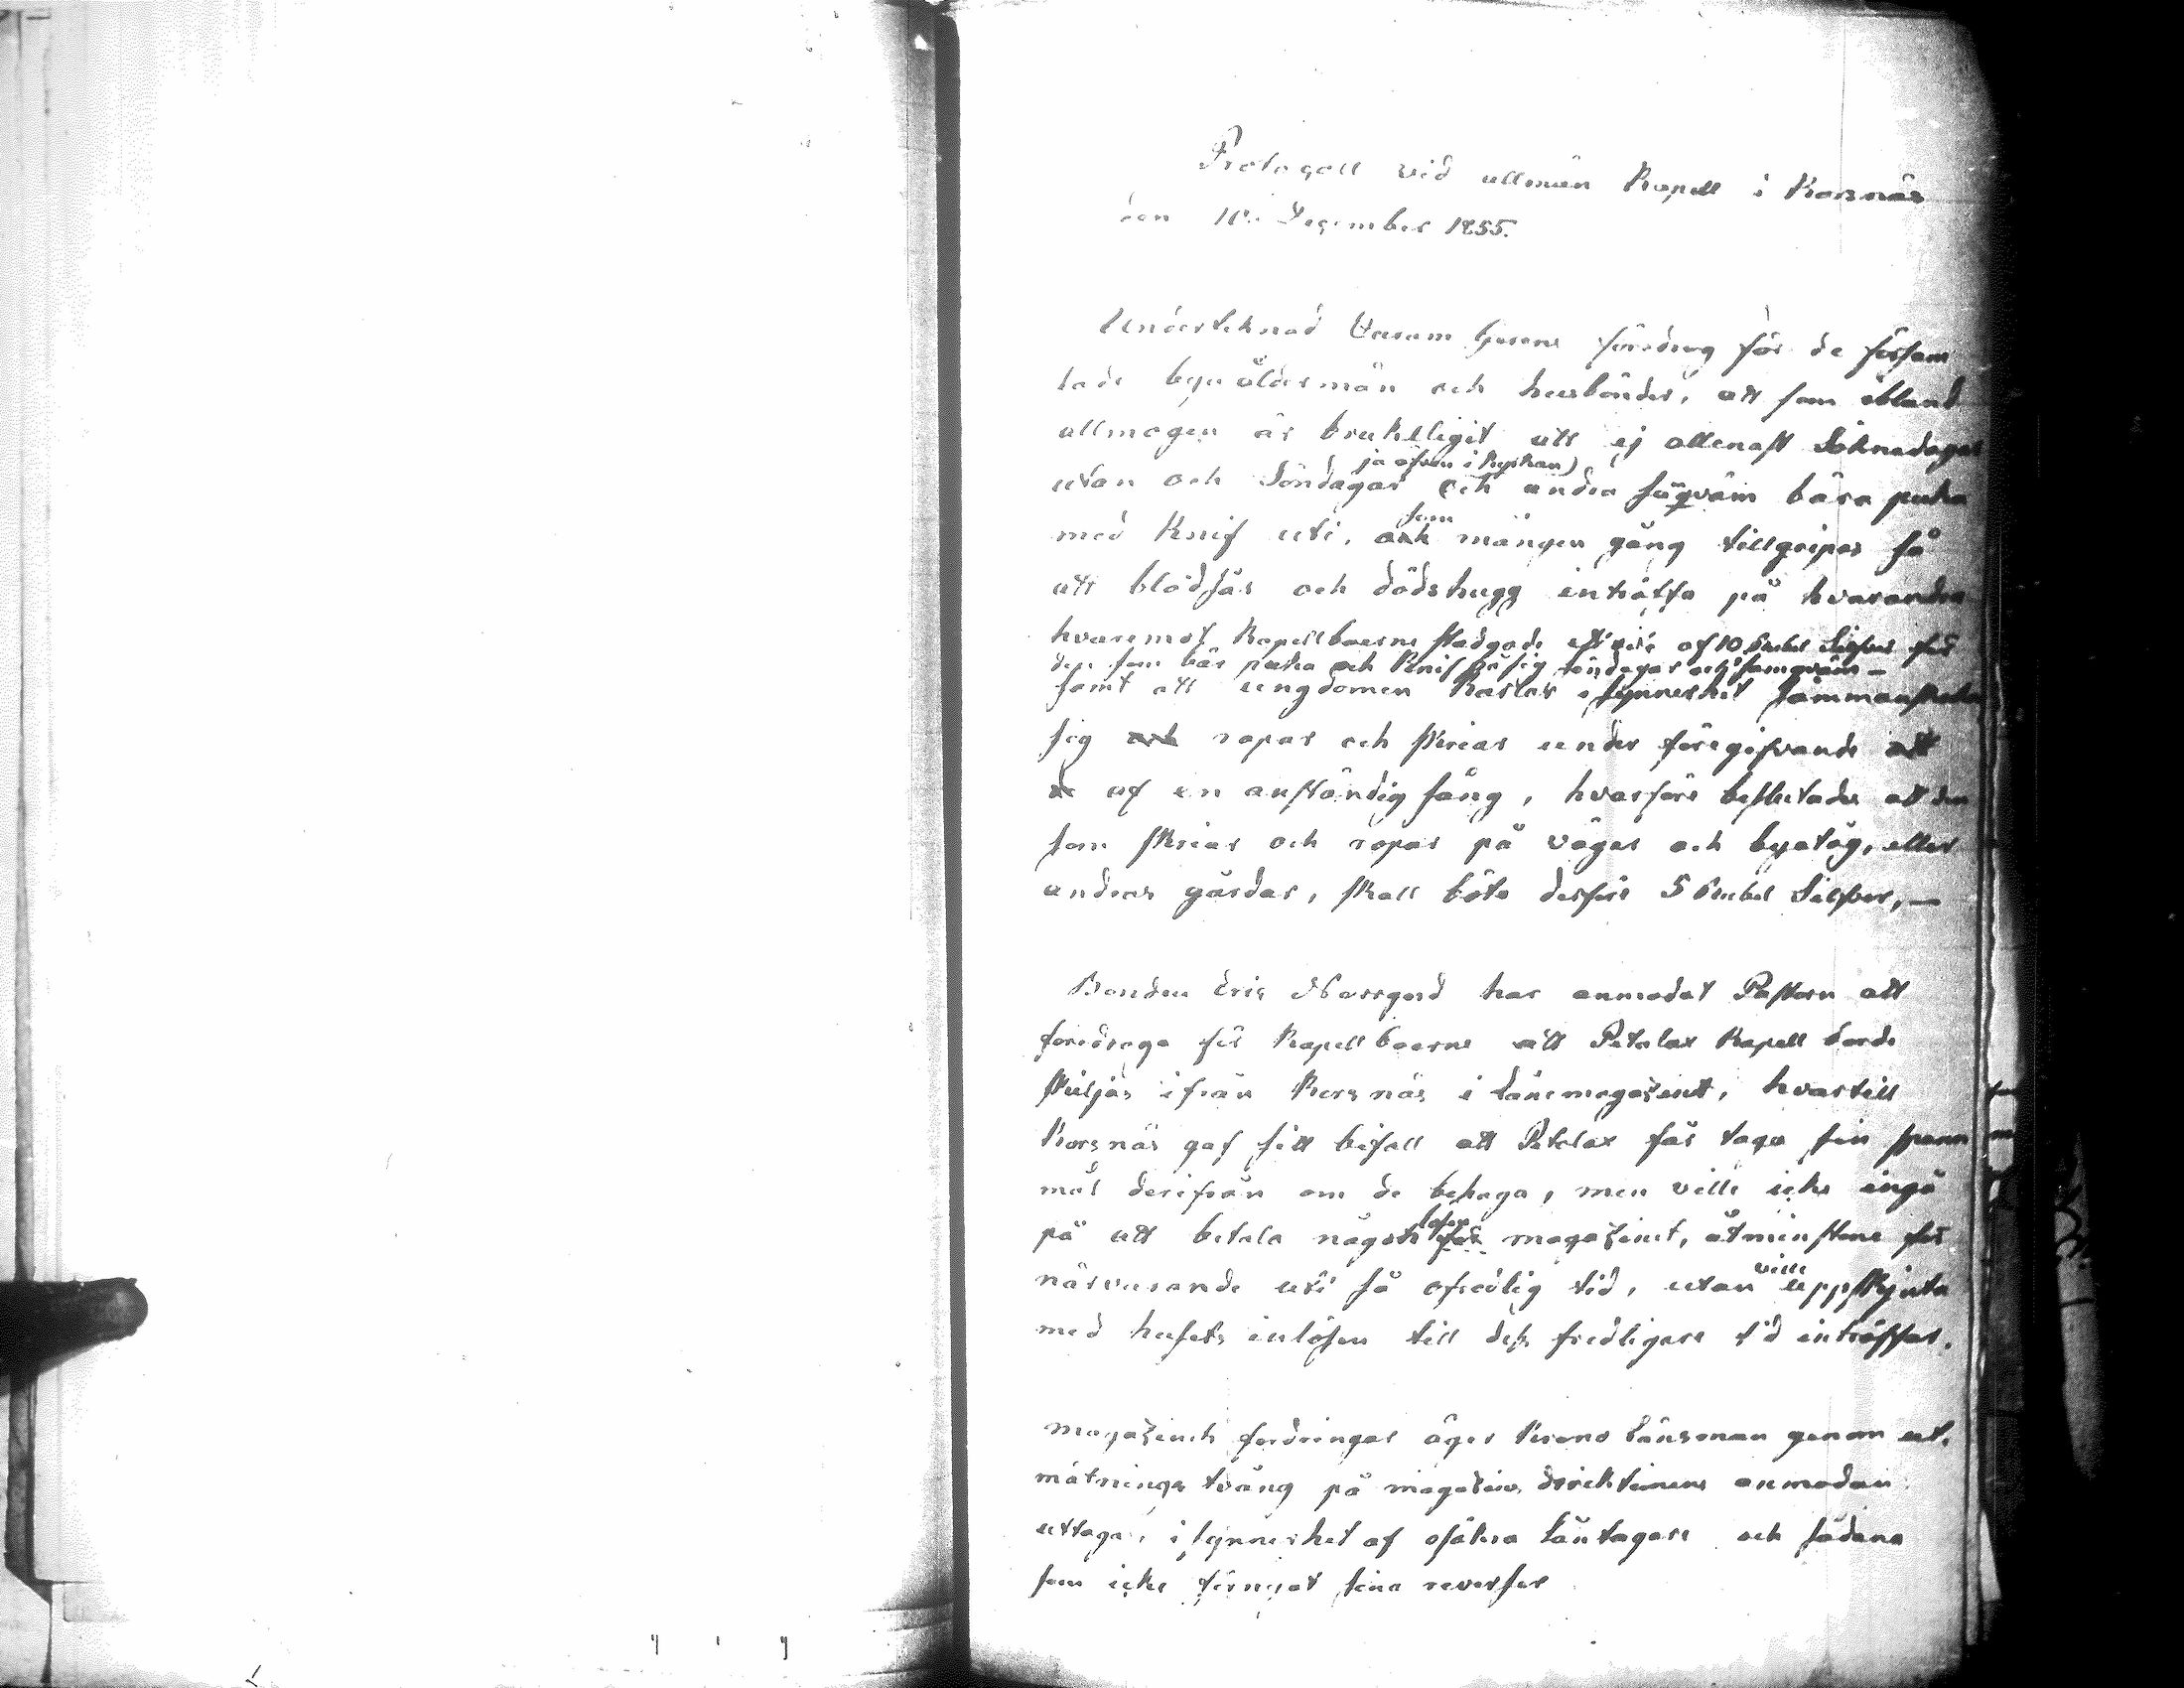 Protocoll vid allmän Kapell i Korsnäs
den 10. December 1855.
Undertecknad föredrog för de församlade
byaåldermän och husbönder, att som ibland
allmogen är brukeligit att ej allenast Söknedagar
utan och Söndagar ja äfven i kyrkan) och andra samqväm bära puka
med Knif uti, som mången gång tillgripes så
att blodsår och dödshugg inträffa på hvarandra
hvaremot Kapellboerne stadgade ett vite af 10 Rubel Silfver för
den som bär puka och Knif på sig söndagar och samqväm –
samt att ungdomen Karlar i synnerhet sammanskocka
sig ropar och skriar under föregifvande
af en anständig sång, hvarföre beslutades att den
som skriar och ropar på vägar och byatåg, eller
andras gårdar, skall böta derföre 5 Rubel Silfver, –
Bonden Eric Norrgård har anmodat Pastorn att
föredraga för Kapellboerne att Petalax Kapell borde
skiljas ifrån Korsnäs i Lånemagasinet, hvartill
Korsnäs gaf sitt bifall att Petalax får taga sin spann
mål derifrån om de behaga, men ville icke ingå
på att betala någon lösen magasinet, åtminstone för
närvarande uti så ofredlig tid, utan ville uppskjuta
med husets inlösen till dess fredligare tid inträffar.
Magasinets fordringar äger Krono Länsman genom ut-
mätnings tvång på magasins direktionens anmodan
uttaga, i synnerhet af osäkra Låntagare och sådana
som icke förnyat sina reverser